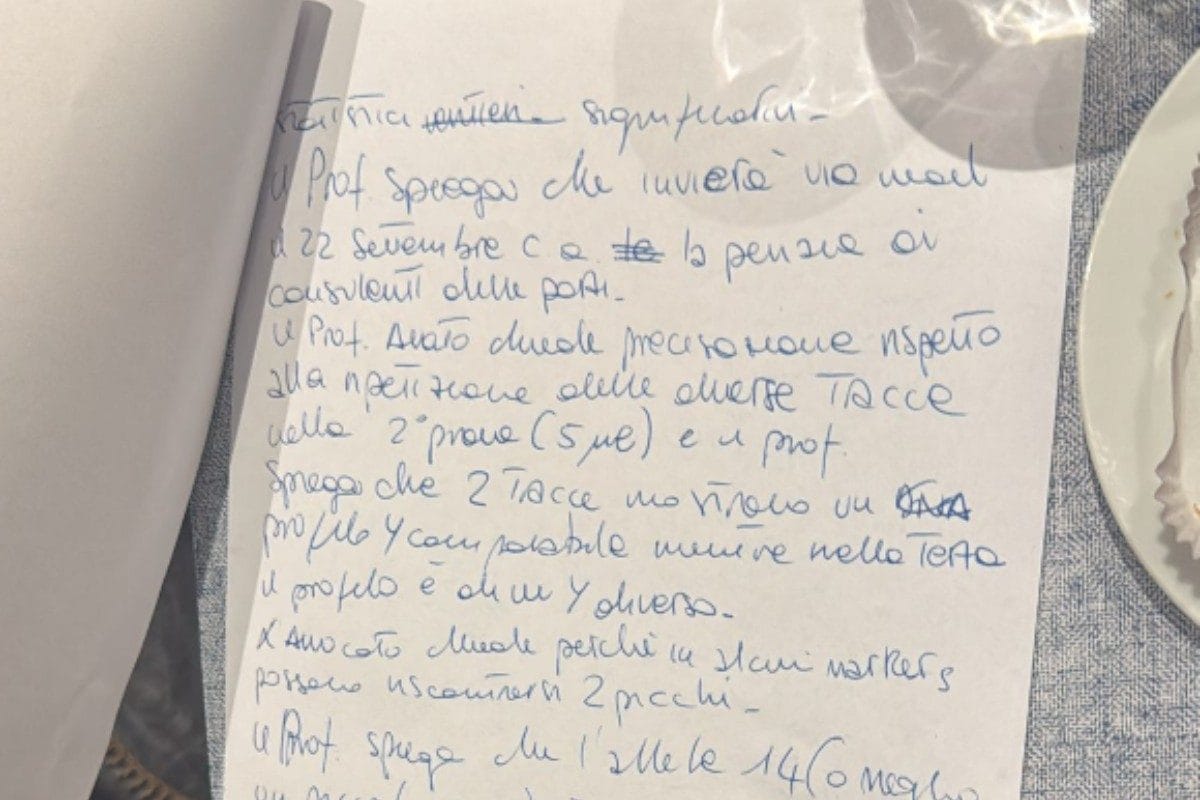 statistica significativi -
il Prof. spiega che invierà via mail
il 22 Settembre c a la perizia ai
consulenti delle parti.
il Prof. chiede precisazione rispetto
alla ripetizione delle diverse TACCE
nella 2° prova (5 µl) e il prof.
spiega che 2 TACCE mostrano un
profilo Y comparabile mentre nella Terza
il profilo è di un Y diverso.
L'Avvocato chiede perché in alcuni markers
possono riscontrarsi 2 picchi -
il Prof. spiega che l'allele 14 (o meglio
un